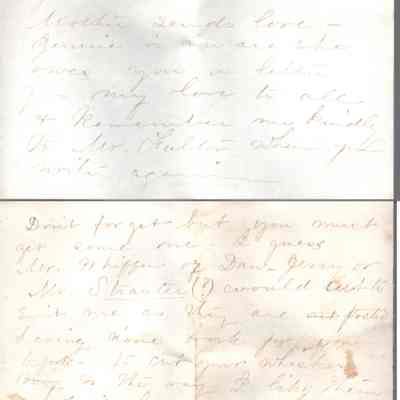 Mother sends love -
Jennie is aware she
owes you a letter
my love to all
& Remember me kindly
to Mr. Fulton when you
write again
Don't forget but you must
get some one - I guess
Mr. Whiffen of Dan. Jenny or
Mr. Strauter (?) would
suit me as they are not posted
having done work for you
to cut your whiskers
long in the way I like them